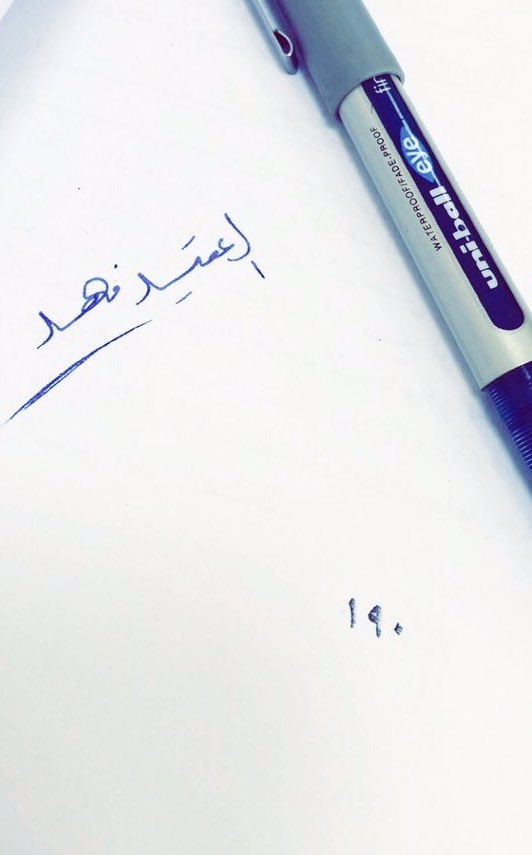 العميد فهد
١٩٠
uni-ball eye fin
WATERPROOF/FADE-PROOF